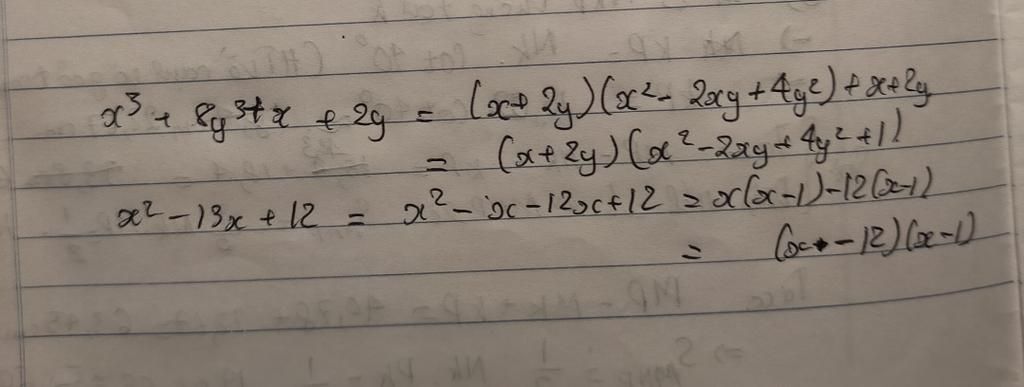 x³ + 8y³ + x + 2y = (x + 2y)(x² - 2xy + 4y²) + x + 2y
= (x + 2y)(x² - 2xy + 4y² + 1)
x² - 13x + 12 = x² - x - 12x + 12 = x(x-1) - 12(x-1)
= (x - 12)(x - 1)